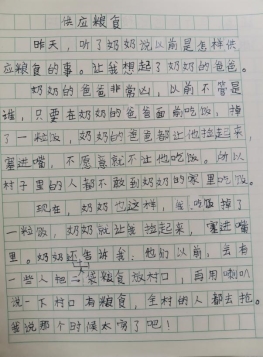 供应粮食
昨天，听了奶奶说以前是怎样供
应粮食的事。让我想起了奶奶的爸爸。
奶奶的爸爸非常凶，以前不管是
谁，只要在奶奶的爸爸面前吃饭，掉
了一粒饭，奶奶的爸爸都让他捡起来，
塞进嘴，不愿意就不让他吃饭。所以
村子里的人都不敢到奶奶的家里吃饭。
现在，奶奶也这样，我吃饭掉了
一粒饭，奶奶就让我捡起来，塞进嘴
里。奶奶还告诉我：他们以前，会有
一些人包一袋粮食放村口，再用喇叭
说一下村口有粮食，全村的人都去抢。
爸说那个时候太穷了吧！